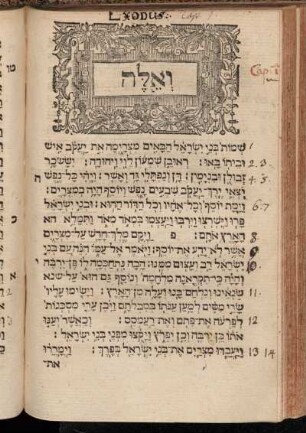 EXODUS. Cap. 1.
וְאֵלֶּה
Cap. 1
שמות בני ישראל הבאים מצרימה את יעקב איש
וביתו באו: ראובן שמעון לוי ויהודה: יששכר 2. 3.
זבולן ובנימין: דן ונפתלי גד ואשר: ויהי כל נפש 4. 5.
יצאי ירך יעקב שבעים נפש ויוסף היה במצרים: ה
וימת יוסף וכל אחיו וכל הדור ההוא: ובני ישראל 6. 7
פרו וישרצו וירבו ויעצמו במאד מאד ותמלא
הארץ אתם: פ ויקם מלך חדש על מצרים 8
אשר לא ידע את יוסף: ויאמר אל עמו הנה עם בני 9
ישראל רב ועצום ממנו: הבה נתחכמה לו פן ירבה 10.
והיה כי תקראנה מלחמה ונוסף גם הוא על שנאינו
ונלחם בנו ועלה מן הארץ: וישימו עליו 11.
שרי מסים למען ענתו בסבלתם ויבן ערי מסכנות
לפרעה את פתם ואת רעמסס: וכאשר יענו 12
אתו כן ירבה וכן יפרץ ויקצו מפני בני ישראל:
ויעבדו מצרים את בני ישראל בפרך: וימררו 13 14
את